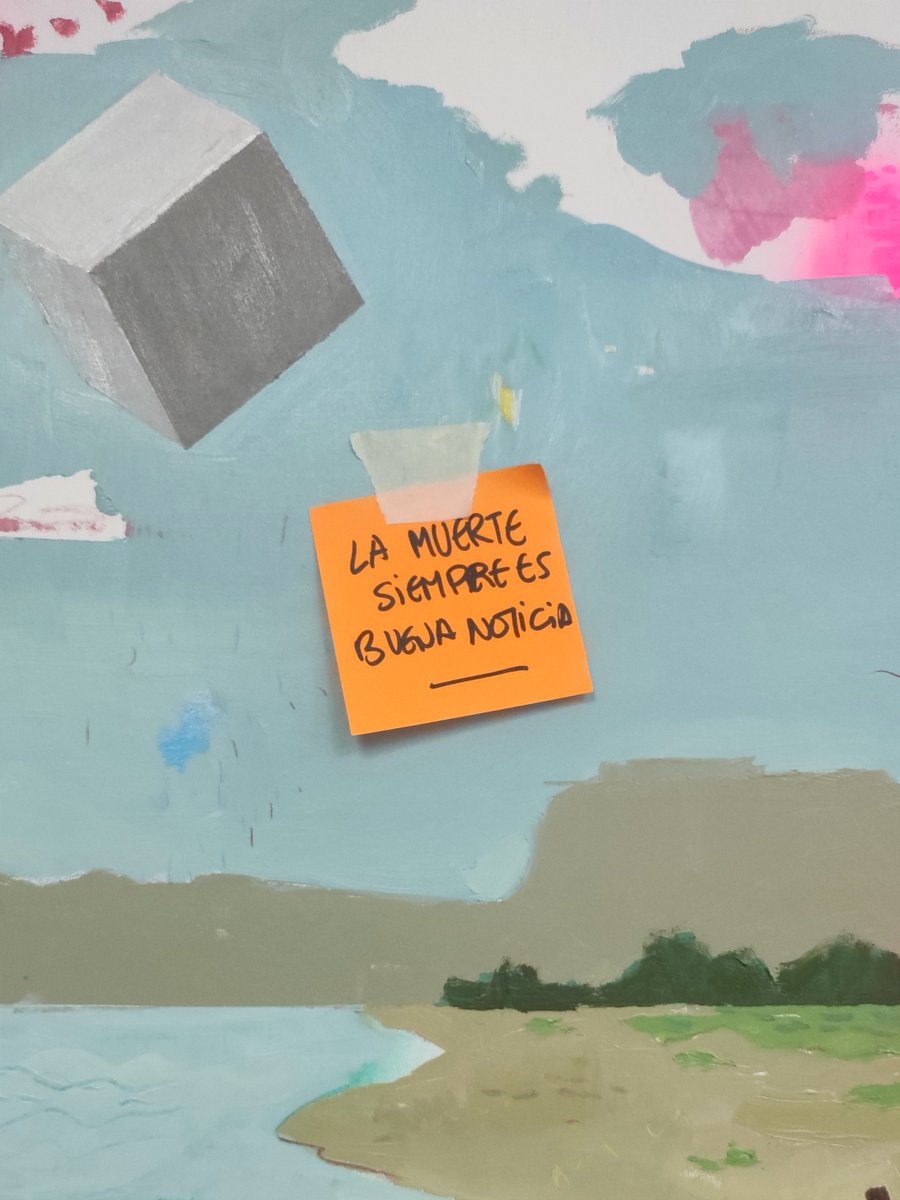 LA MUERTE
SIEMPRE ES
BUENA NOTICIA